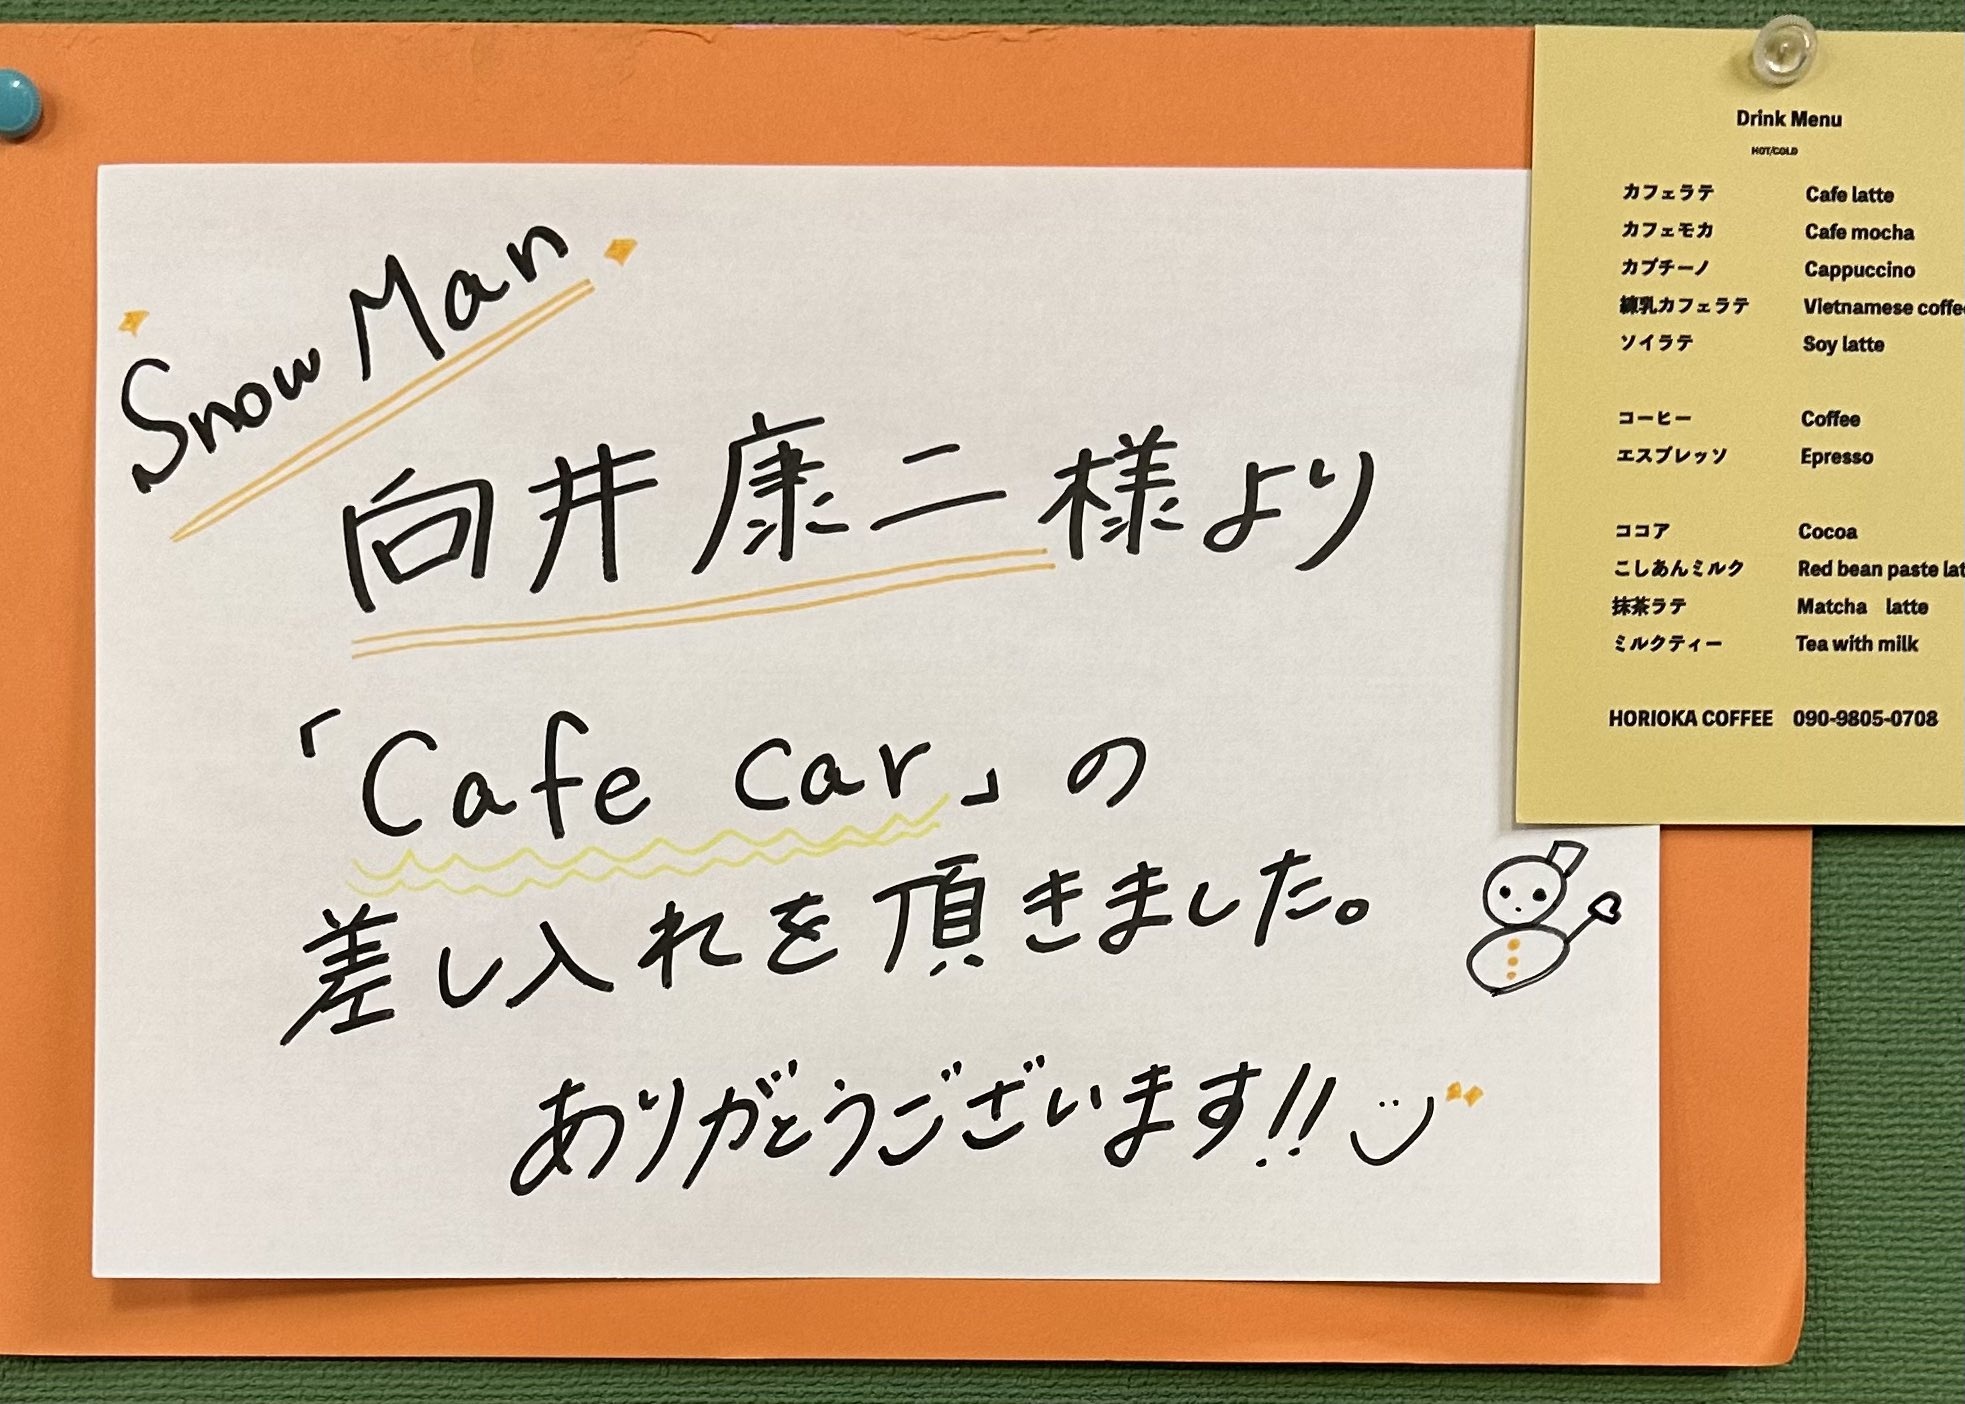 Snow Man
向井康二様より
「Cafe Car」の
差し入れを頂きました。
ありがとうございます!!
Drink Menu
HOT/COLD
カフェラテ Cafe latte
カフェモカ Cafe mocha
カプチーノ Cappuccino
練乳カフェラテ Vietnamese coffee
ソイラテ Soy latte
コーヒー Coffee
エスプレッソ Epresso
ココア Cocoa
こしあんミルク Red bean paste lat
抹茶ラテ Matcha latte
ミルクティー Tea with milk
HORIOKA COFFEE 090-9805-0708